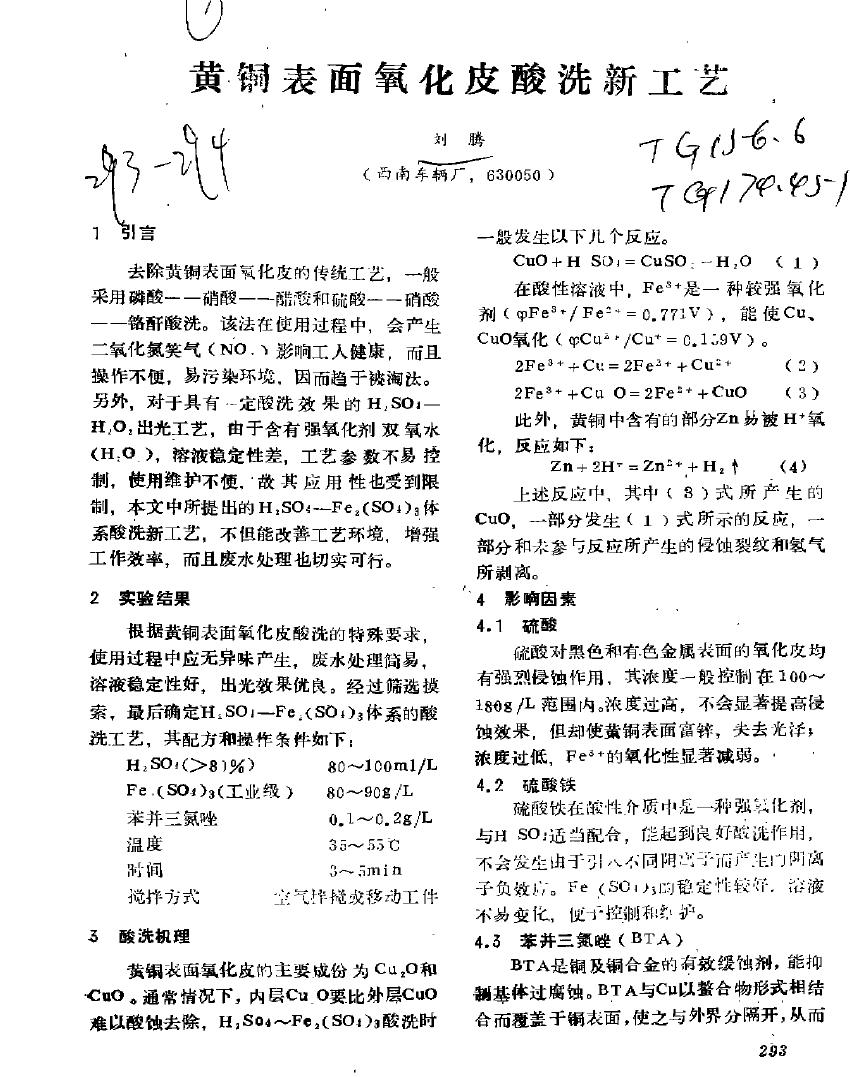 黄铜表面氧化皮酸洗新工艺
刘 腾
(西南车辆厂, 630050)
293-294
TG156.6
TG174.451
1 引言
去除黄铜表面氧化皮的传统工艺, 一般
采用磷酸——硝酸——醋酸和硫酸——硝酸
——铬酐酸洗。该法在使用过程中, 会产生
二氧化氮等气(NO.)影响工人健康, 而且
操作不便, 易污染环境, 因而趋于被淘汰。
另外, 对于具有一定酸洗效果的H₂SO₄—
H₂O₂出光工艺, 由于含有强氧化剂双氧水
(H₂O₂), 溶液稳定性差, 工艺参数不易控
制, 使用维护不便, 故其应用性也受到限
制, 本文中所提出的H₂SO₄—Fe₂(SO₄)₃体
系酸洗新工艺, 不但能改善工艺环境, 增强
工作效率, 而且废水处理也切实可行。
2 实验结果
根据黄铜表面氧化皮酸洗的特殊要求,
使用过程中应无异味产生, 废水处理简易,
溶液稳定性好, 出光效果优良。经过筛选摸
索, 最后确定H₂SO₄—Fe₂(SO₄)₃体系的酸
洗工艺, 其配方和操作条件如下:
H₂SO₄(>81%) 80～100ml/L
Fe₂(SO₄)₃(工业级) 80～90g/L
苯并三氮唑 0.1～0.2g/L
温度 35～55℃
时间 3～5min
搅拌方式 空气拌搅或移动工件
3 酸洗机理
黄铜表面氧化皮的主要成份为Cu₂O和
CuO。通常情况下, 内层Cu₂O要比外层CuO
难以酸蚀去除, H₂SO₄～Fe₂(SO₄)₃酸洗时
一般发生以下几个反应。
CuO+H₂SO₄=CuSO₄-H₂O (1)
在酸性溶液中, Fe³⁺是一种较强氧化
剂(φFe³⁺/Fe²⁺=0.771V), 能使Cu、
CuO氧化(φCu²⁺/Cu⁺=0.159V)。
2Fe³⁺+Cu=2Fe²⁺+Cu²⁺ (2)
2Fe³⁺+Cu₂O=2Fe²⁺+CuO (3)
此外, 黄铜中含有的部分Zn易被H⁺氧
化, 反应如下:
Zn+2H⁺=Zn²⁺+H₂↑ (4)
上述反应中, 其中(3)式所产生的
CuO, 一部分发生(1)式所示的反应, 一
部分和未参与反应所产生的侵蚀裂纹和氢气
所剥离。
4 影响因素
4.1 硫酸
硫酸对黑色和有色金属表面的氧化皮均
有强烈侵蚀作用, 其浓度一般控制在100～
180g/L范围内。浓度过高, 不会显著提高侵
蚀效果, 但却使黄铜表面富锌, 失去光泽;
浓度过低, Fe³⁺的氧化性显著减弱。
4.2 硫酸铁
硫酸铁在酸性介质中是一种强氧化剂,
与H₂SO₄适当配合, 能起到良好酸洗作用,
不会发生由于引入不同阴离子而产生的阴离
子负效应。Fe₂(SO₄)₃的稳定性较好, 溶液
不易变化, 便于控制和维护。
4.3 苯并三氮唑(BTA)
BTA是铜及铜合金的有效缓蚀剂, 能抑
制基体过腐蚀。BTA与Cu以螯合物形式相结
合而覆盖于铜表面, 使之与外界分隔开, 从而
293